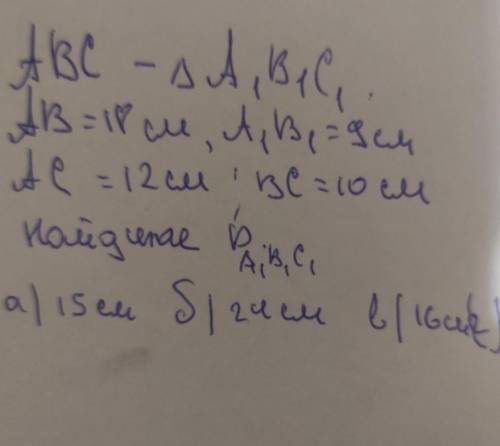 ABC - Δ A₁B₁C₁.
AB = 18 см, A₁B₁ = 9 см
AC = 12 см, BC = 10 см
найдите P A₁B₁C₁
а) 15 см б) см в) 16 см